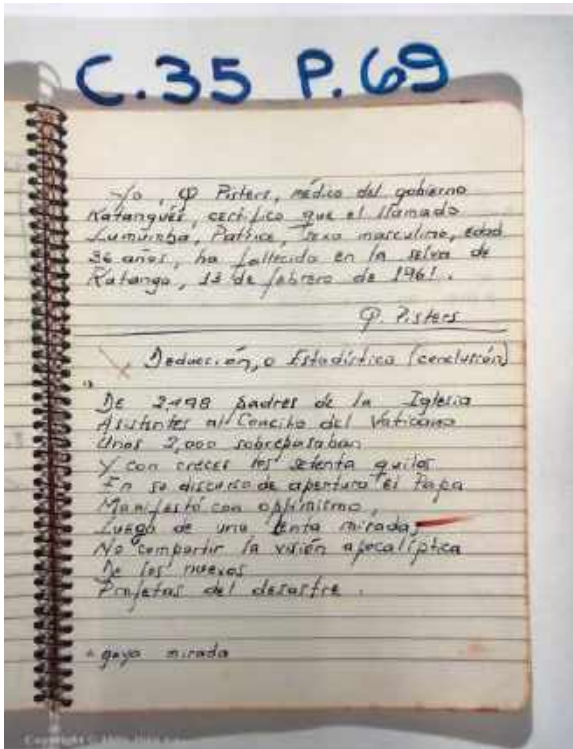 C.35 P.69
Yo, Q Pisters, médico del gobierno
Katangués, certifico que el llamado
Lumumba, Patrice, sexo masculino, edad
36 años, ha fallecido en la selva de
Katanga, 13 de febrero de 1961.
Q. Pisters
Deducción, o Estadística (conclusión)
De 2,498 padres de la Iglesia
Asistentes al Concilio del Vaticano
Unos 2,000 sobrepasaban
Y con creces los setenta quilos
En su discurso de apertura el Papa
Manifestó con optimismo,
Luego de una lenta mirada,
No compartir la visión apocalíptica
De los nuevos
Profetas del desastre.
gaya mirada
Copyright ©